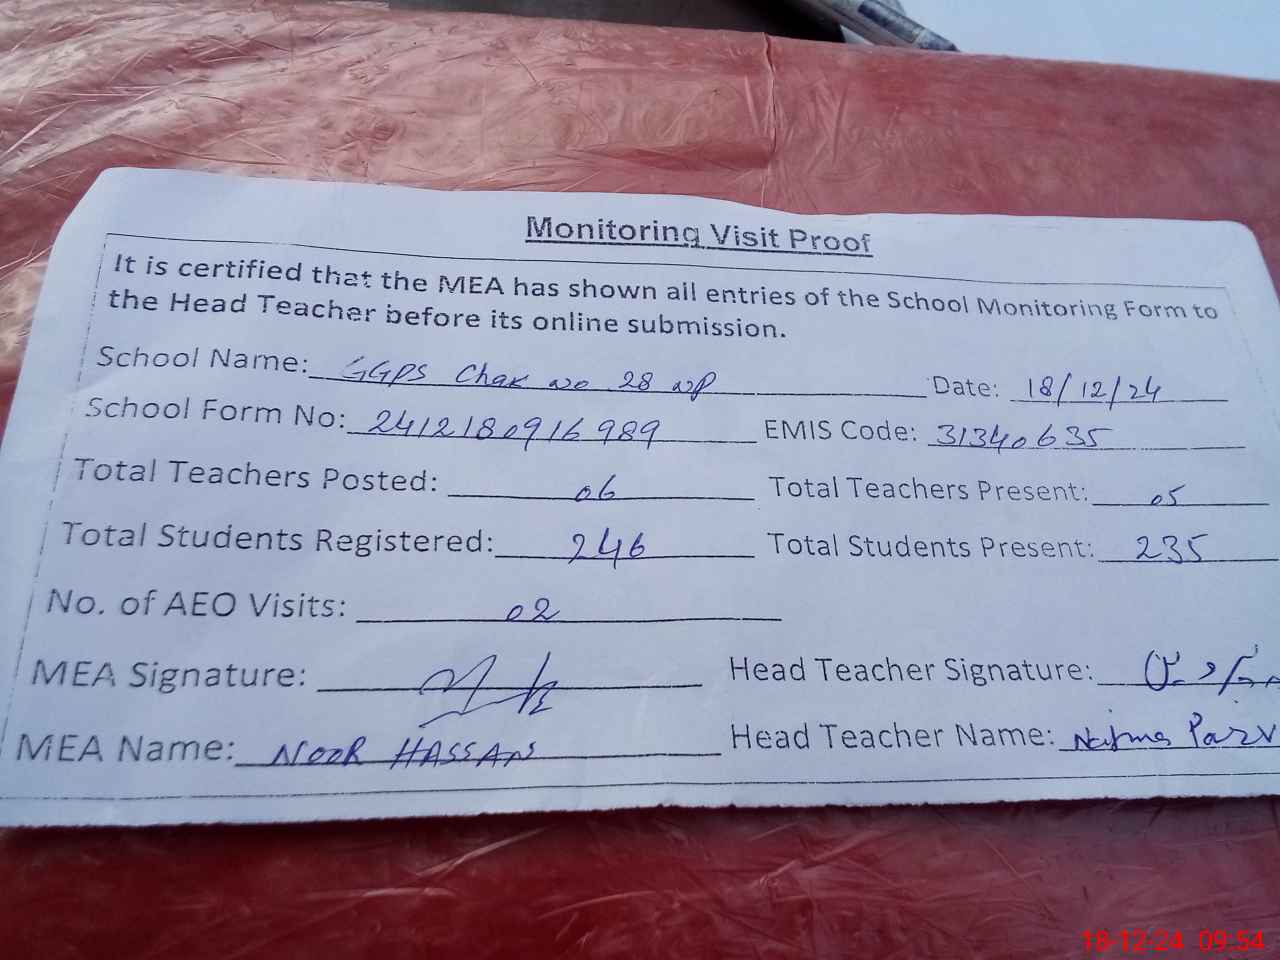 Monitoring Visit Proof
It is certified that the MEA has shown all entries of the School Monitoring Form to
the Head Teacher before its online submission.
School Name: GGPS Chak no 28 NP Date: 18/12/24
School Form No: 2412180916989 EMIS Code: 31340635
Total Teachers Posted: 06 Total Teachers Present: 05
Total Students Registered: 246 Total Students Present: 235
No. of AEO Visits: 02
MEA Signature: Head Teacher Signature:
MEA Name: NOOR HASSAN Head Teacher Name: Najma Parv
18-12-24 09:54